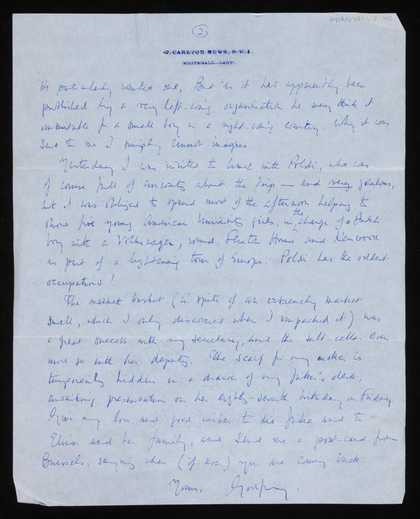 (2)
2, CARLTON MEWS, S.W.1.
WHITEHALL
he particularly wanted one, But as it has apparently been
published by a very left-wing organisation he may think it
unsuitable for a small boy in a right-wing country. Why it was
sent to me I simply cannot imagine.
Yesterday I was invited to lunch with Poldi, who was
of course full of about the — and very
but I was obliged to spend most of the afternoon helping to
show five young American University girls, in the charge of a Dutch
boy with a Volkswagen, round House and Kenwood
as part of a lightning tour of Europe. Poldi has the oddest
occupations!
The market basket (in spite of an extremely market
smell, which I only discovered when I unpacked it) was
a great success with my secretary, and the salt-cellar even
more so with her deputy. The scarf for my mother is
temporarily hidden in a drawer of my father's desk,
awaiting presentation on her eighty-seventh birthday on Friday
Give my love and good wishes to and to
and her family, and send me a post-card from
Brussels, saying when (if ever) you are coming back.
Yours, Godfrey